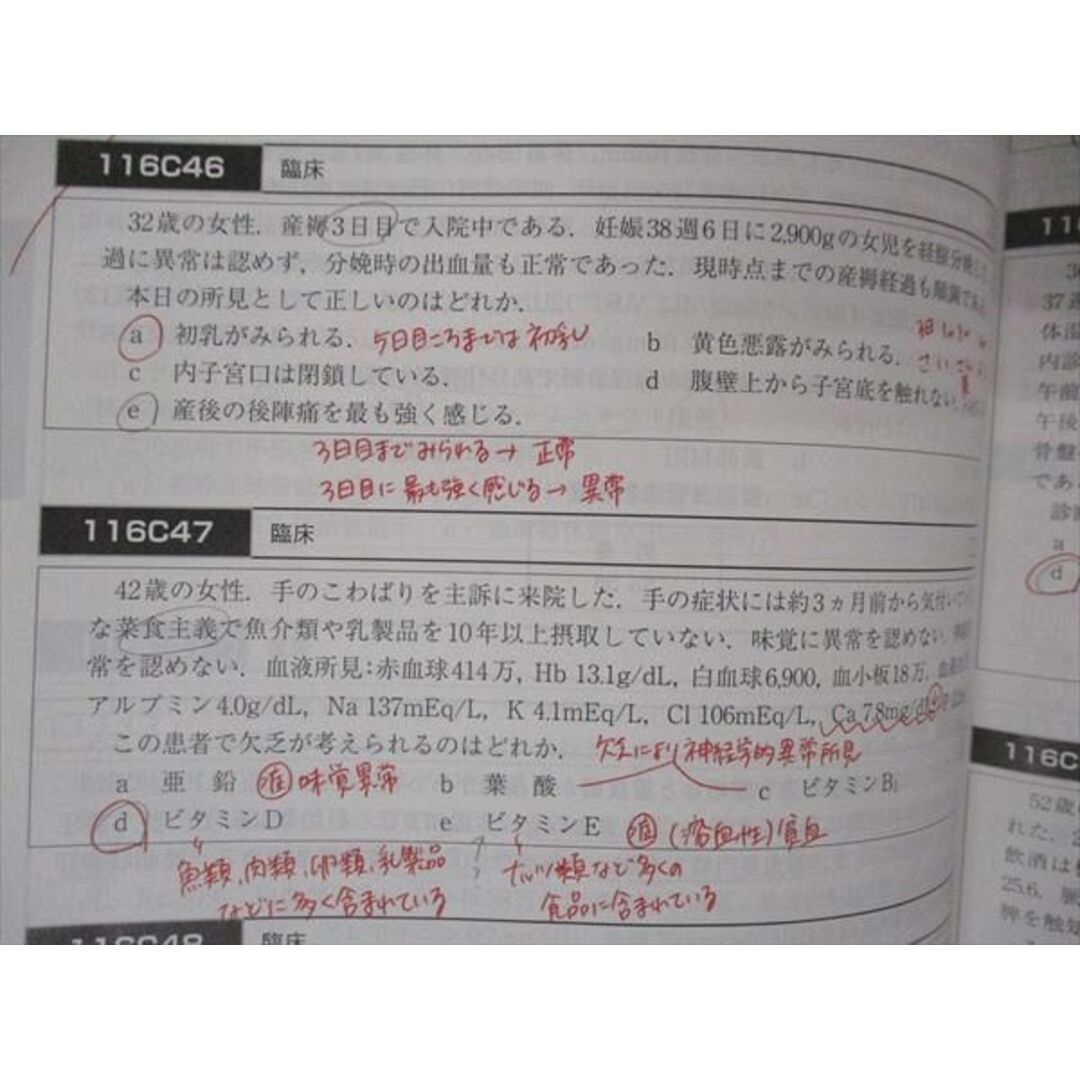 116C46 臨床
32歳の女性．産褥3日目で入院中である．妊娠38週6日に2,900gの女児を経腟分娩した
過に異常は認めず，分娩時の出血量も正常であった．現時点までの産褥経過も順調であ
本日の所見として正しいのはどれか．
a 初乳がみられる． 5日目ころまでは初乳 b 黄色悪露がみられる．
c 内子宮口は閉鎖している． d 腹壁上から子宮底を触れない．
e 産後の後陣痛を最も強く感じる．
3日目までみられる→正常
3日目に最も強く感じる→異常
116C47 臨床
42歳の女性．手のこわばりを主訴に来院した．手の症状には約3ヵ月前から気付いて
な菜食主義で魚介類や乳製品を10年以上摂取していない．味覚に異常を認めない
常を認めない．血液所見：赤血球414万，Hb 13.1g/dL，白血球6,900，血小板18万，
アルブミン4.0g/dL，Na 137mEq/L，K 4.1mEq/L，Cl 106mEq/L，Ca 7.8mg/dL
この患者で欠乏が考えられるのはどれか． 欠乏により神経学的異常所見
a 亜鉛 味覚異常 b 葉酸 c ビタミンB1
d ビタミンD e ビタミンE (溶血性)貧血
魚類、肉類、卵類、乳製品 ナッツ類など多くの
などに多く含まれている 食品に含まれている
116C48 臨床
11
37週
体温
内診
午前
午後
骨盤
であ
診断
a
d
116C
52歳
れた．2
飲酒は
25.6．脈
脾を触知